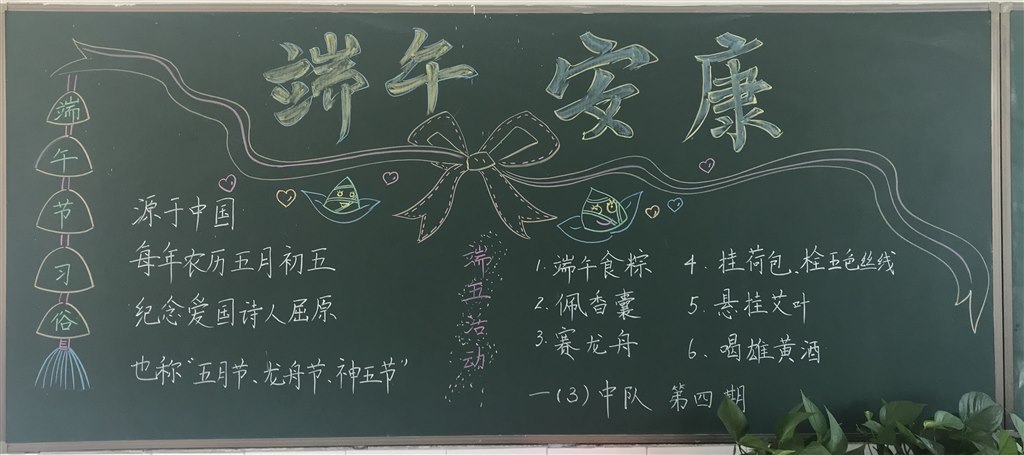 端午安康
端午节习俗
源于中国
每年农历五月初五
纪念爱国诗人屈原
也称“五月节、龙舟节、神五节”
端五活动
1. 端午食粽
2. 佩香囊
3. 赛龙舟
4. 挂荷包、栓五色丝线
5. 悬挂艾叶
6. 喝雄黄酒
一(3)中队 第四期